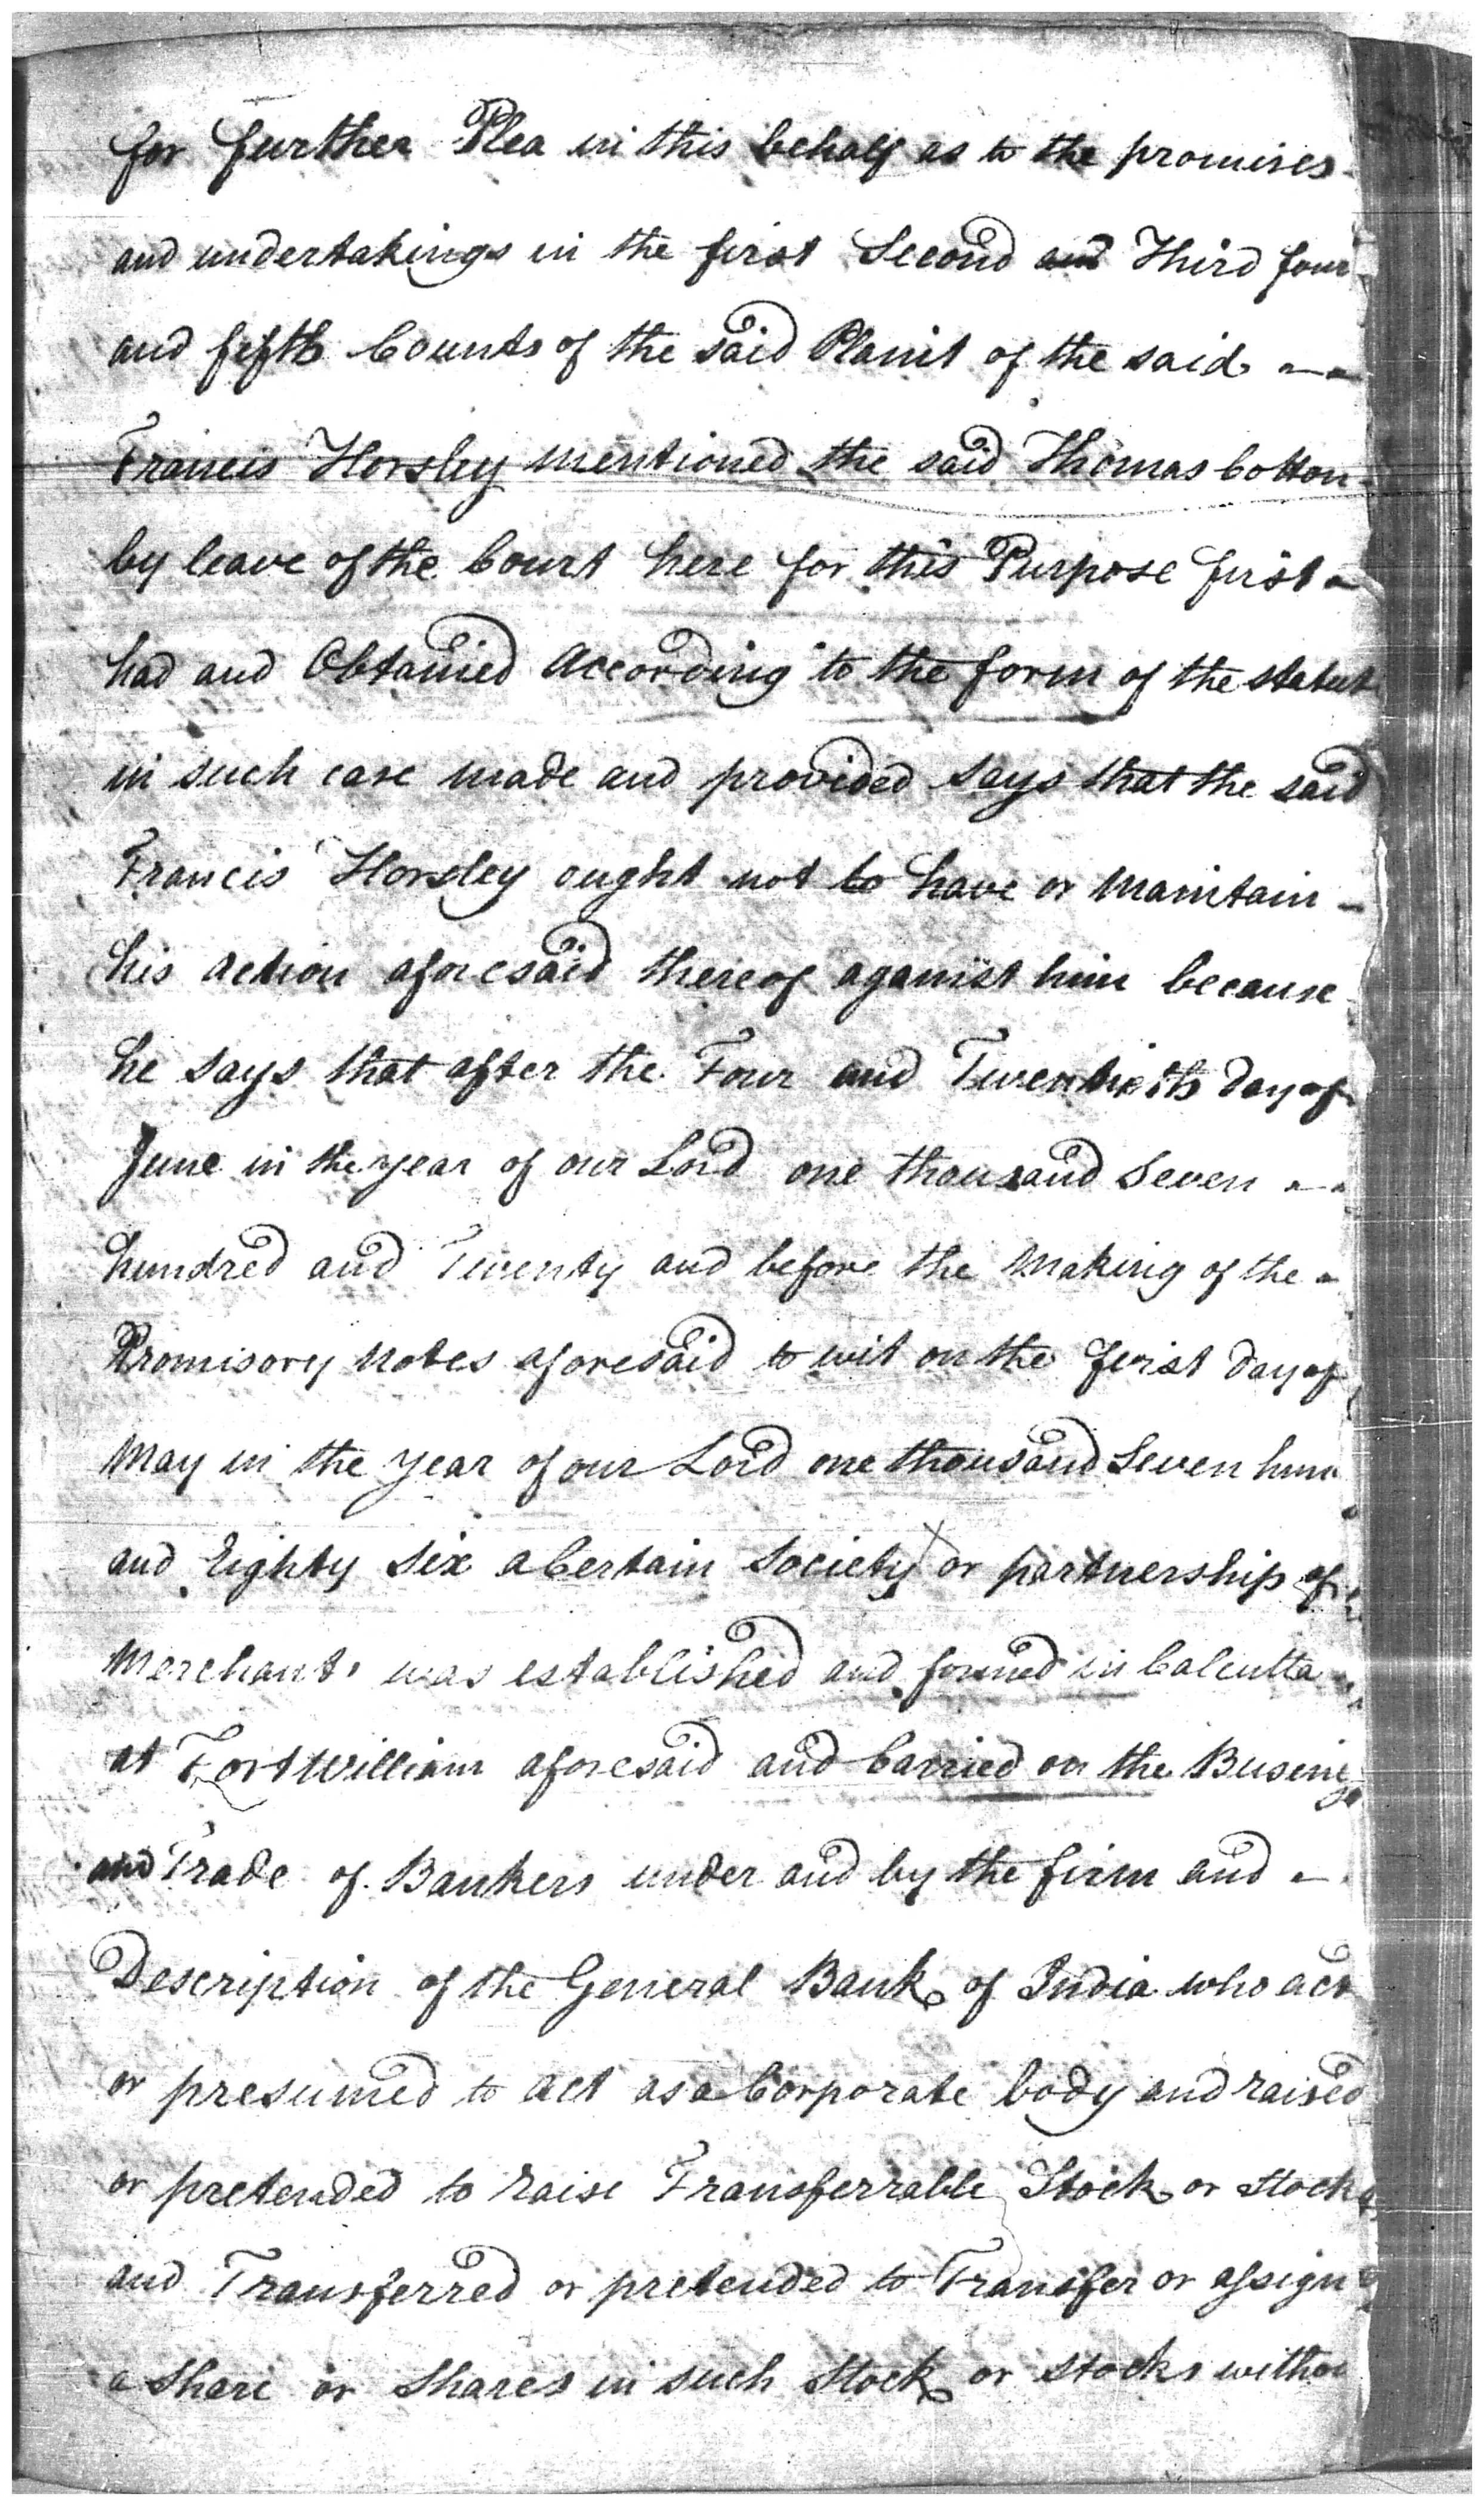 for further Plea in this behalf as to the promises
and undertakings in the first Second and Third four
and fifth Counts of the said Plaint of the said
Francis Horsley mentioned the said Thomas Cotton
by leave of the Court here for this Purpose first
had and Obtained According to the form of the statut
in such case made and provided says that the said
Francis Horsley ought not to have or Maintain
his Action aforesaid thereof against him because
he says that after the Four and Twentieth day of
June in the year of our Lord one thousand Seven
hundred and Twenty and before the Making of the
Promisory Notes aforesaid to wit on the first day of
May in the year of our Lord one thousand Seven hun
and Eighty Six a Certain Society or partnership of
Merchants was established and formed in Calcutta
at Fort William aforesaid and Carried on the Busine
and Trade of Bankers under and by the firm and
Description of the General Bank of India who act
or presumed to Act as a Corporate body and raised
or pretended to raise Transferrable Stock or Stocks
and Transferred or pretended to Transfer or assign
a Share or Shares in such Stock or stocks withou